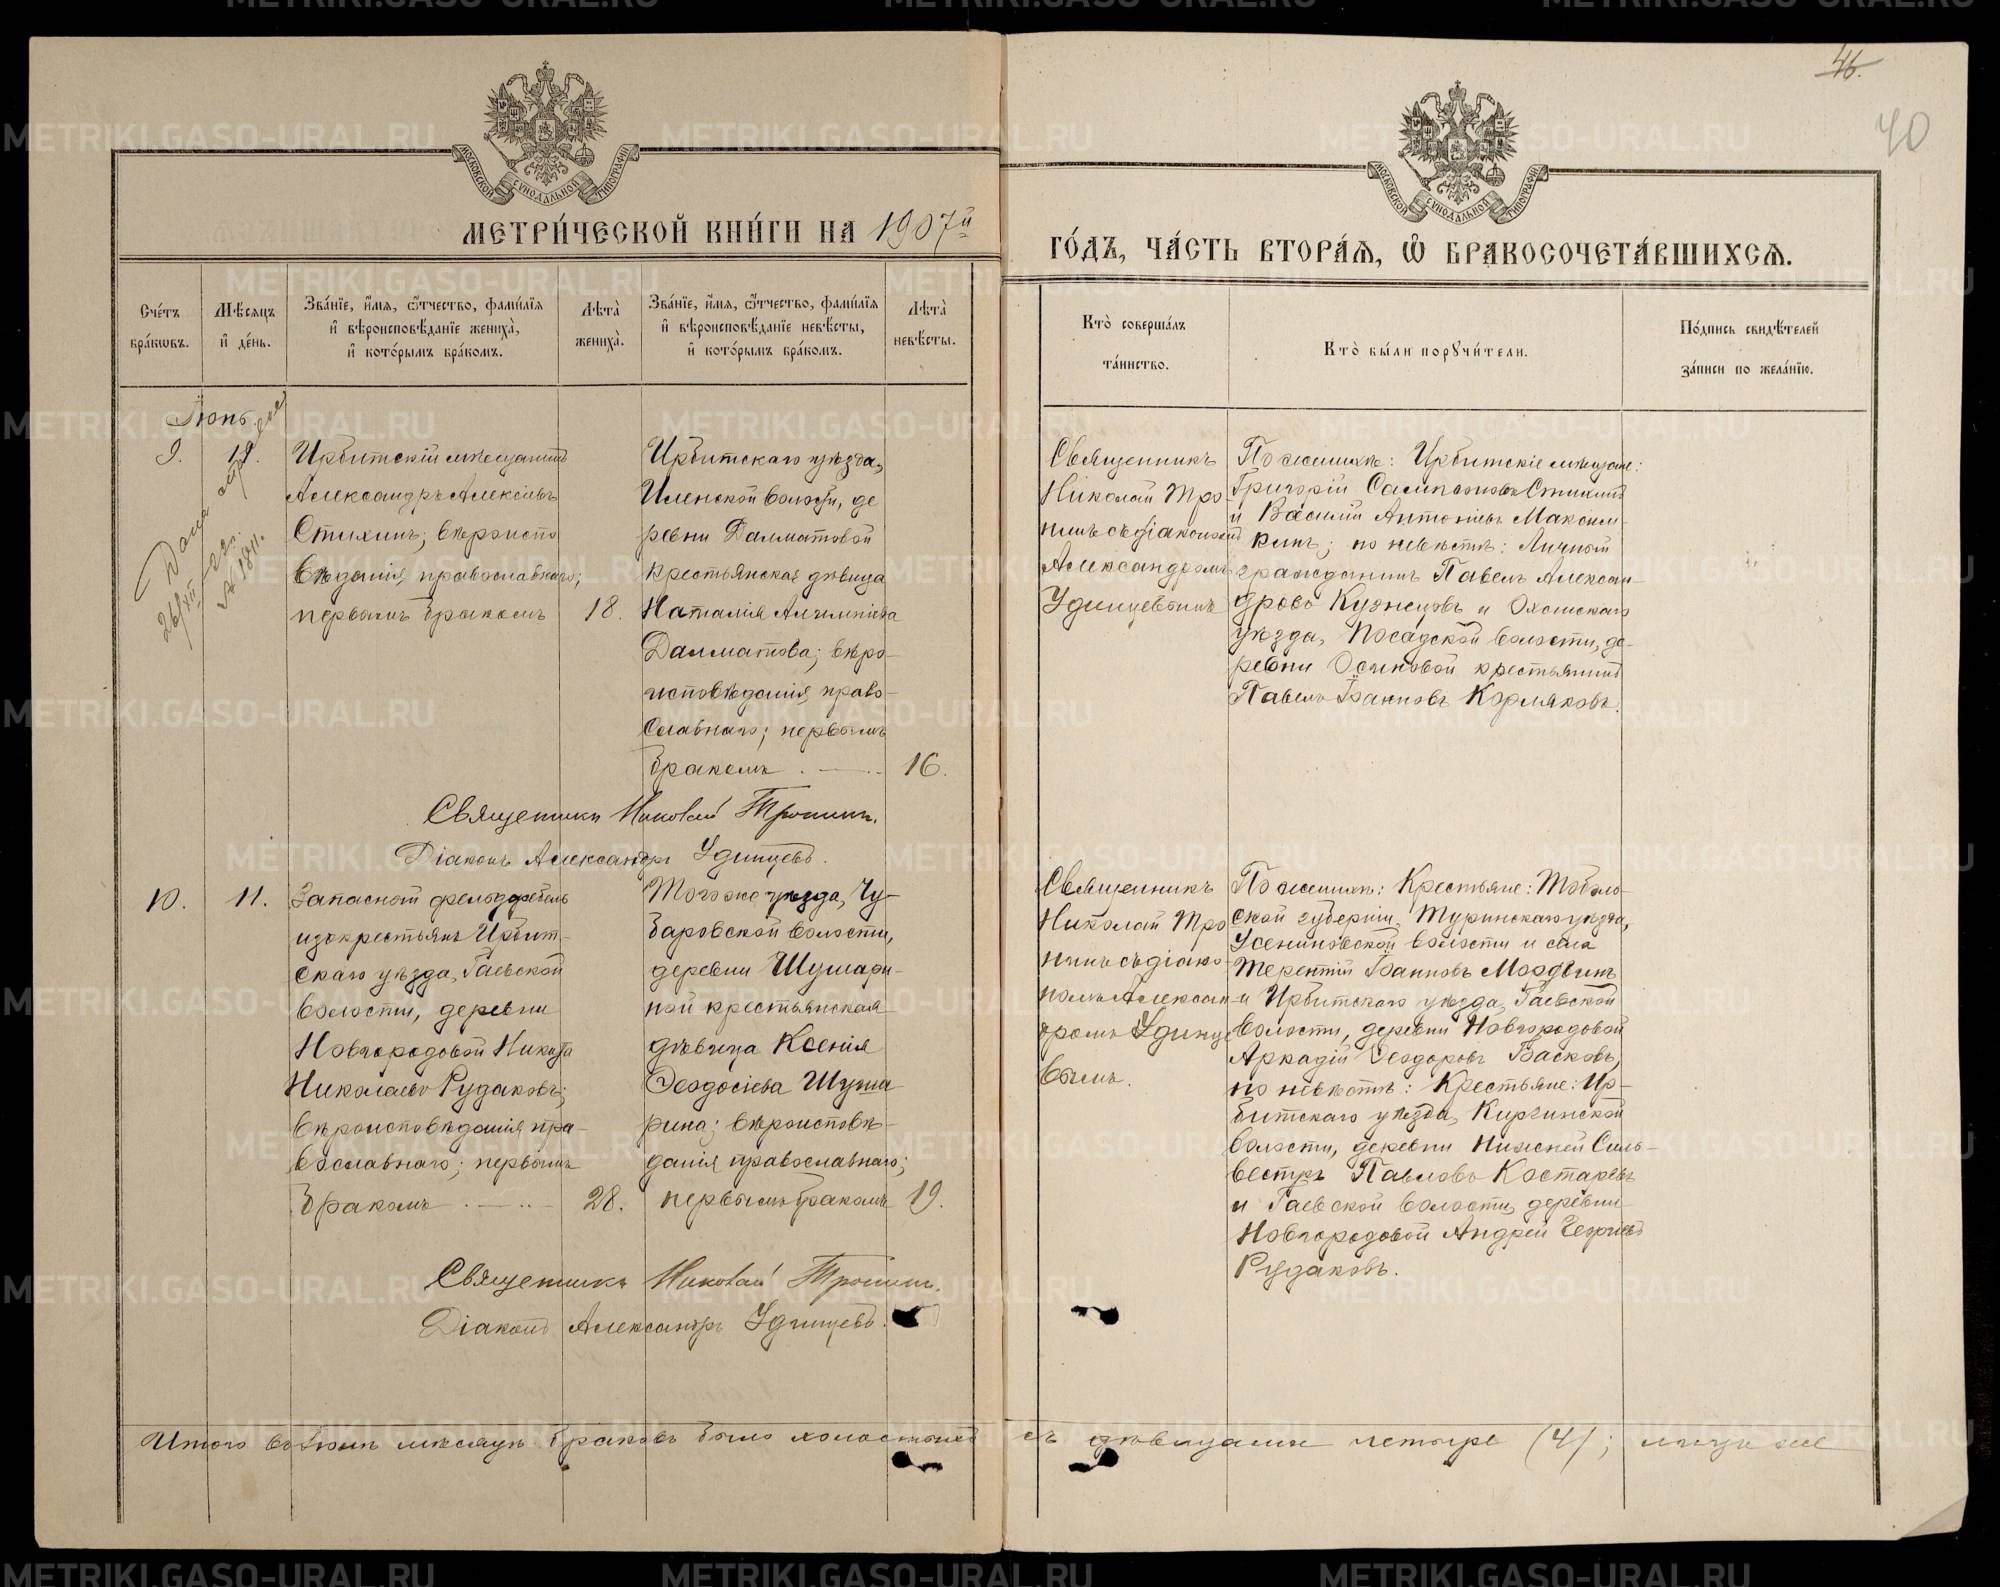 46.
40
МОСКОВСКОЙ СѴНОДАЛЬНОЙ ТИПОГРАФІИ
МОСКОВСКОЙ СѴНОДАЛЬНОЙ ТИПОГРАФІИ
МЕТРИ́ЧЕСКОЙ КНИ́ГИ НА 1907й
ГО́ДЪ, ЧА́СТЬ ВТОРА́Ѧ, Ѽ БРАКОСОЧЕТА́ВШИХСѦ.
Сче́тъ
бра́кѡвъ.
Мѣ́сѧцъ
и҆ де́нь.
Зва́нїе, и҆́мѧ, ѻ҆́тчество, фами́лїѧ
и҆ вѣроисповѣ́данїе жениха̀,
и҆ кото́рымъ бра́комъ.
Лѣта̀
жениха̀.
Зва́нїе, и҆́мѧ, ѻ҆́тчество, фами́лїѧ
и҆ вѣроисповѣ́данїе невѣ́сты,
и҆ кото́рымъ бра́комъ.
Лѣта̀
невѣ́сты.
Кто̀ соверша́лъ
та́инство.
Кто̀ бы́ли порꙋчи́тели.
По́дпись свидѣ́телей
за́писи по жела́нїю.
Іюнь.
9.
Ирбитскій мѣщанинъ
Александръ Алексѣевъ
Стихинъ; вѣроиспо
вѣданія православнаго;
первымъ бракомъ
18.
Ирбитскаго уѣзда,
Иленской волости, де
ревни Далматовой
крестьянская дѣвица
Наталія
Далматова; вѣро-
исповѣданія право-
славнаго; первымъ
бракомъ
16.
Священникъ
Николай Тро
нинъ съ діакономъ
Александромъ
Удинцевымъ
По женихѣ: Ирбитскіе мѣщане:
Григорій Сампсоновъ Стихинъ
и Василій Антоніевъ Максим-
кинъ; по невѣстѣ: Личный
гражданинъ Павелъ Алексан-
дровъ Кузнецовъ и Оханскаго
уѣзда, Посадской волости, де-
ревни Осиновой крестьянинъ
Павелъ Іоанновъ Кормяковъ.
Священникъ Николай Тронинъ.
Діаконъ Александръ Удинцевъ.
10.
11.
Запасной фельдфебель
изъ крестьянъ Ирбит-
скаго уѣзда, Гаевской
волости, деревни
Новгородовой Никита
Николаевъ Рудаковъ;
вѣроисповѣданія пра-
вославнаго; первымъ
бракомъ
28.
Того же уѣзда, Чу-
баровской волости,
деревни Шушари-
ной крестьянская
дѣвица Ксенія
Ѳеодосіева Шуша
рина; вѣроисповѣ-
данія православнаго;
первымъ бракомъ
19.
Священникъ
Николай Тро
нинъ съ діако-
номъ Алексан-
дромъ Удинце
вымъ.
По женихѣ: Крестьяне: Тоболь-
ской губерніи, Туринскаго уѣзда,
Усениновской волости и села
Терентій Іоанновъ Мордвинъ
и Ирбитскаго уѣзда, Гаевской
волости, деревни Новгородовой
Аркадій Ѳеодоровъ Басковъ,
по невѣстѣ: Крестьяне: Ир-
битскаго уѣзда, Киргинской
волости, деревни Нижней Силь-
вестръ Павловъ Костаревъ
и Гаевской волости, деревни
Новгородовой Андрей Георгіевъ
Рудаковъ.
Священникъ Николай Тронинъ.
Діаконъ Александръ Удинцевъ.
Итого въ Іюнѣ мѣсяцѣ браковъ было холостыхъ съ дѣвицами четыре (4);
METRIKI.GASO-URAL.RU